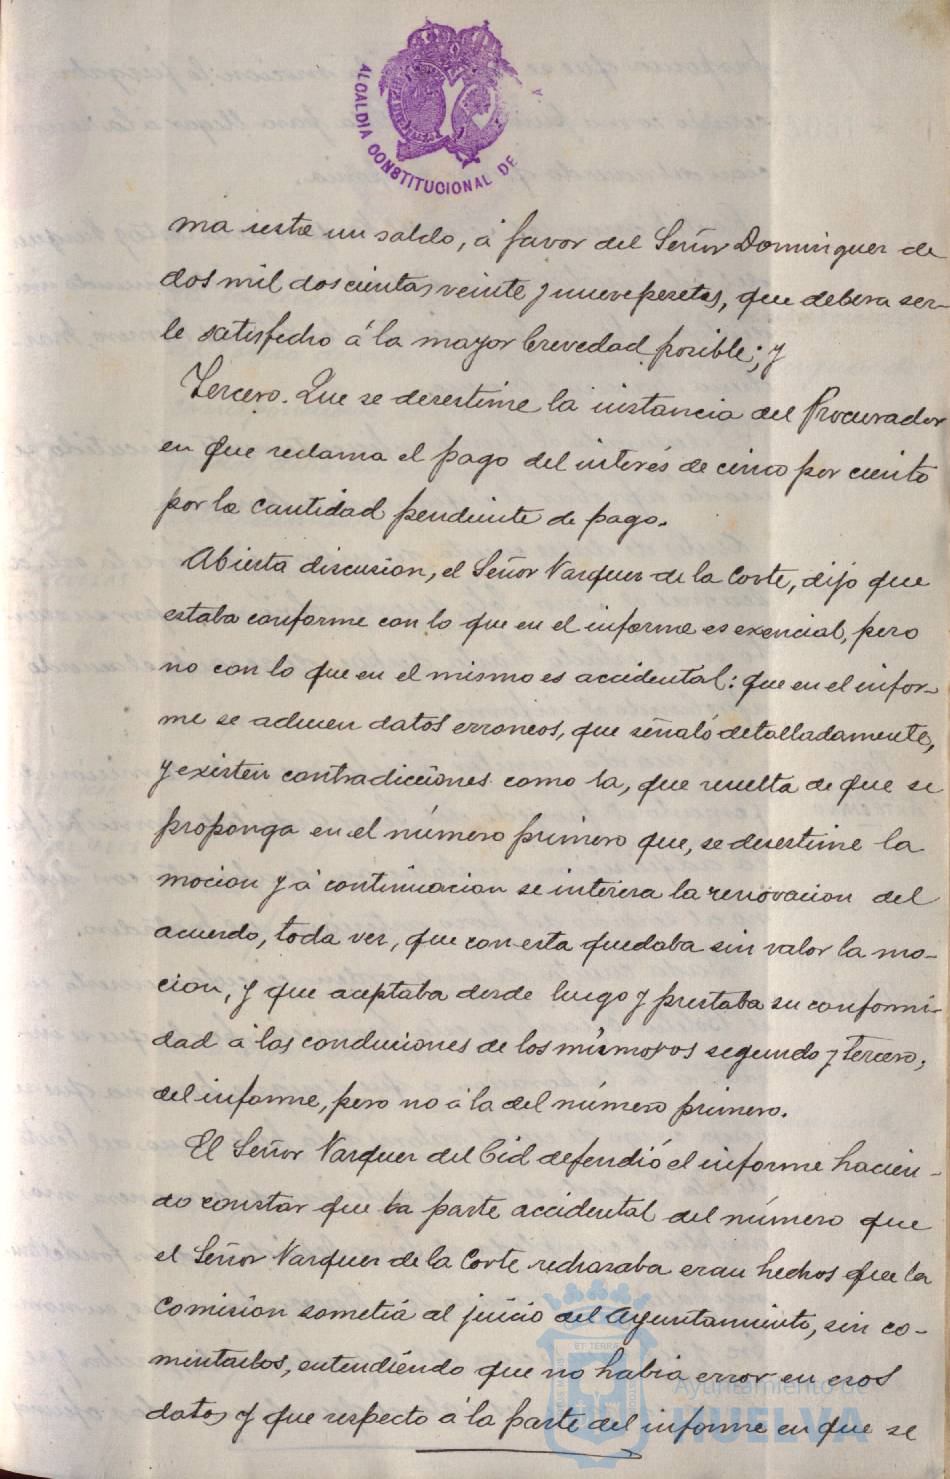 ALCALDIA CONSTITUCIONAL DE
ma resta un saldo, á favor del Señor Dominguez de
dos mil doscientas veinte y nueve pesetas, que debera ser-
le satisfecho á la mayor brevedad posible; y
Tercero. Que se desestime la instancia del Procurador
en que reclama el pago del interés de cinco por ciento
por la cantidad pendiente de pago.
Abierta discusion, el Señor Vazquez de la Corte, dijo que
estaba conforme con lo que en el informe es exencial, pero
no con lo que en el mismo es accidental: que en el infor-
me se aducen datos erroneos, que señaló detalladamente,
y existen contradicciones como la, que resulta de que se
proponga en el número primero que, se desestime la
mocion y á continuacion se interesa la renovacion del
acuerdo, toda vez, que con esta quedaba sin valor la mo-
cion, y que aceptaba desde luego y prestaba su conformi-
dad á las conclusiones de los segundo y tercero,
del informe, pero no á la del número primero.
El Señor Vazquez del Cid defendió el informe hacien-
do constar que la parte accidental del número que
el Señor Vazquez de la Corte rechazaba eran hechos que la
Comision sometiá al juicio del Ayuntamiento, sin co-
mentarlos, entendiendo que no habia error en esos
datos y que respecto á la parte del informe en que se
ET TERRA
Ayuntamiento de
HUELVA